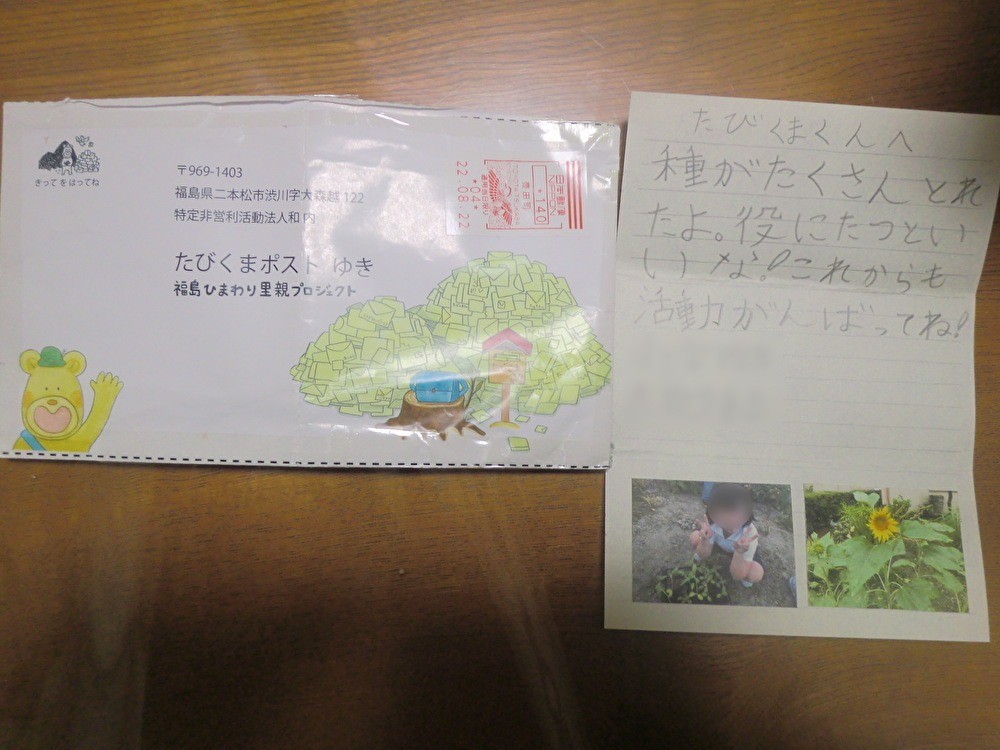 きってをはってね
〒969-1403
福島県二本松市渋川字大森越 122
特定非営利活動法人和 内
たびくまポスト ゆき
福島ひまわり里親プロジェクト
日本郵便
NIPPON
140
22.08.22
たびくまくんへ
種がたくさんとれ
たよ。役にたつとい
いな!これからも
活動がんばってね!